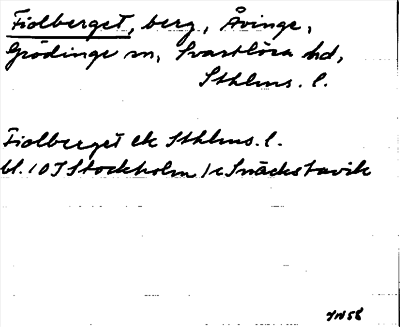 Fiolberget, berg, Åvinge,
Grödinge sn, Svartlösa hd,
Sthlms. l.
Fiolberget ek Sthlms. l.
bl. 10I Stockholm 1c Snäckstavik